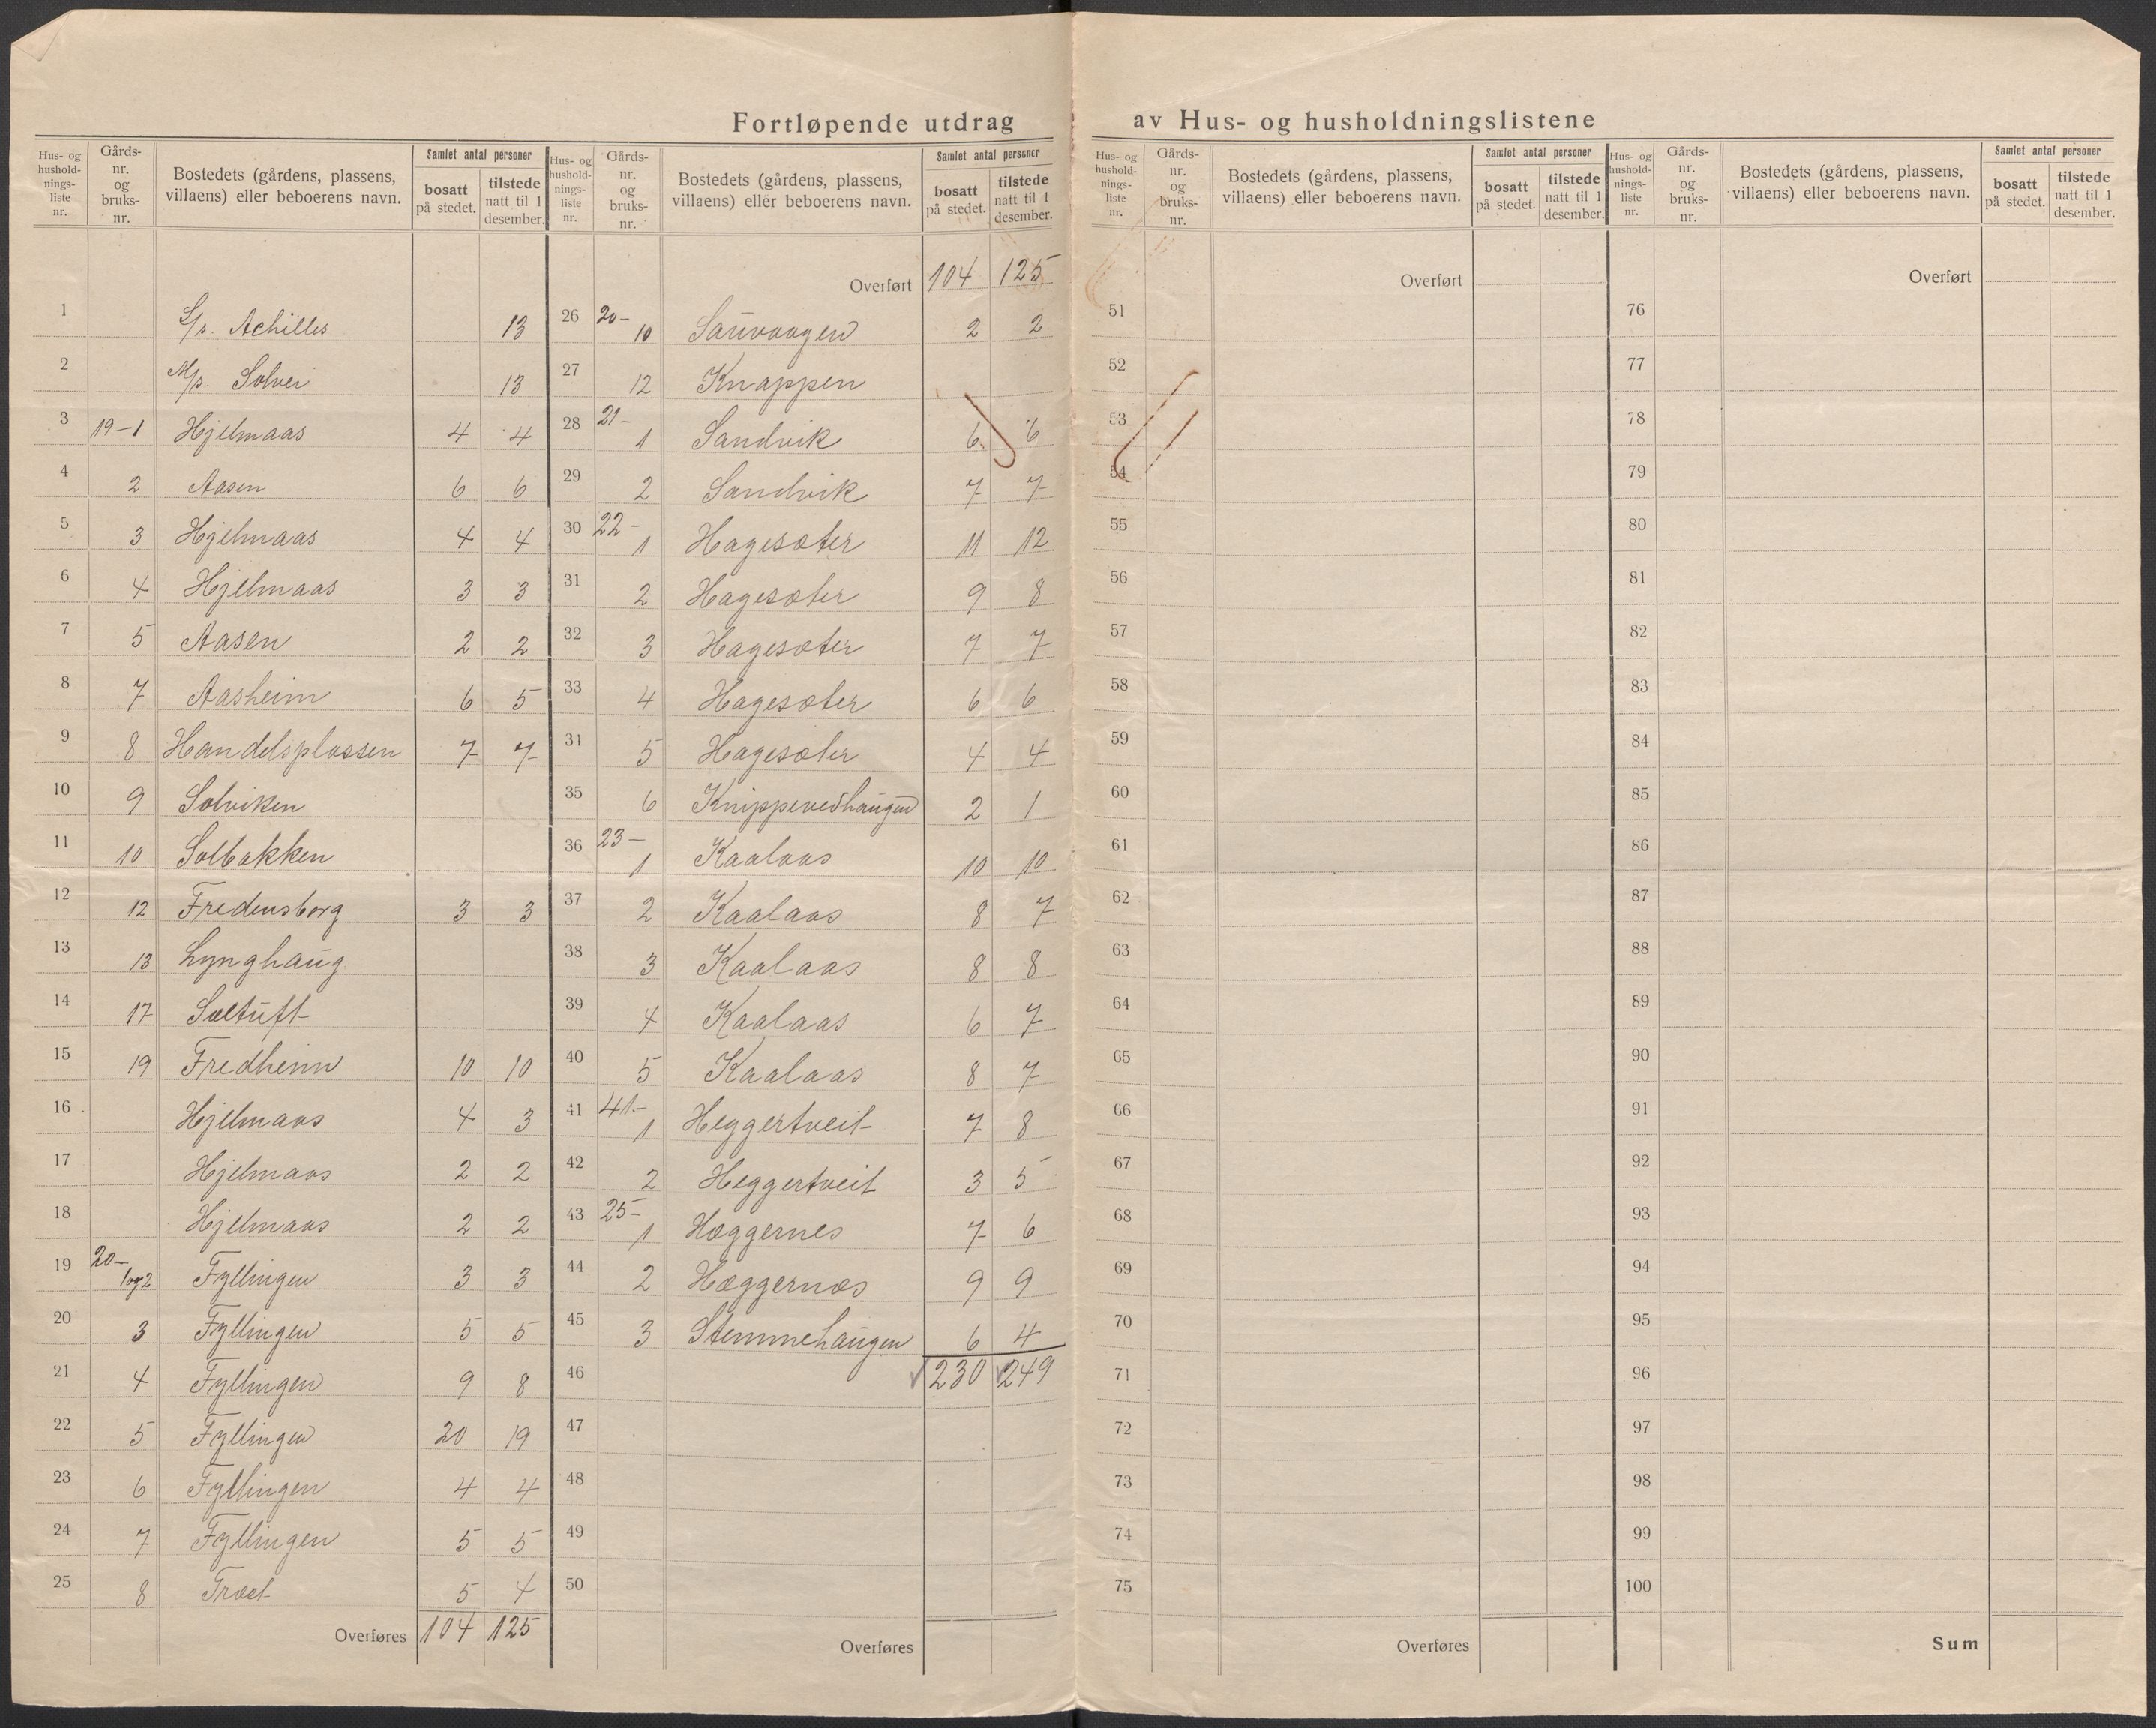 Fortløpende utdrag av Hus- og husholdningslistene
Hus- og hushold-nings-liste nr. | Gårds-nr. og bruks-nr. | Bostedets (gårdens, plassens, villaens) eller beboerens navn. | Samlet antal personer | bosatt på stedet. | tilstede natt til 1 desember.
1 S/s. Achilles 13
2 M/s. Solvei 13
3 19-1 Hjelmaas 4 4
4 2 Aasen 6 6
5 3 Hjelmaas 4 4
6 4 Hjelmaas 3 3
7 5 Aasen 2 2
8 7 Aasheim 6 5
9 8 Handelsplassen 7 7
10 9 Solviken
11 10 Solbakken
12 12 Fredensborg 3 3
13 13 Lynghaug
14 17 Soltuft
15 19 Fredheim 10 10
16 Hjelmaas 4 3
17 Hjelmaas 2 2
18 Hjelmaas 2 2
19 20- 1og2 Fyllingen 3 3
20 3 Fyllingen 5 5
21 4 Fyllingen 9 8
22 5 Fyllingen 20 19
23 6 Fyllingen 4 4
24 7 Fyllingen 5 5
25 8 Træet 5 4
Overføres 104 125
Hus- og hushold-nings-liste nr. | Gårds-nr. og bruks-nr. | Bostedets (gårdens, plassens, villaens) eller beboerens navn. | Samlet antal personer | bosatt på stedet. | tilstede natt til 1 desember.
Overført 104 125
26 20- 10 Sauvaagen 2 2
27 12 Knappen
28 21- 1 Sandvik 6 6
29 2 Sandvik 7 7
30 22- 1 Hagesæter 11 12
31 2 Hagesæter 9 8
32 3 Hagesæter 7 7
33 4 Hagesæter 6 6
31 5 Hagesæter 4 4
35 6 Knippevedhaugen 2 1
36 23- 1 Kaalaas 10 10
37 2 Kaalaas 8 7
38 3 Kaalaas 8 8
39 4 Kaalaas 6 7
40 5 Kaalaas 8 7
41 41- 1 Heggertveit 7 8
42 2 Heggertveit 3 5
43 25- 1 Hæggernes 7 6
44 2 Hæggernæs 9 9
45 3 Stemmehaugen 6 4
46 230 249
47
48
49
50
Overføres
Hus- og hushold-nings-liste nr. | Gårds-nr. og bruks-nr. | Bostedets (gårdens, plassens, villaens) eller beboerens navn. | Samlet antal personer | bosatt på stedet. | tilstede natt til 1 desember.
Overført
51
52
53
54
55
56
57
58
59
60
61
62
63
64
65
66
67
68
69
70
71
72
73
74
75
Overføres
Hus- og hushold-nings-liste nr. | Gårds-nr. og bruks-nr. | Bostedets (gårdens, plassens, villaens) eller beboerens navn. | Samlet antal personer | bosatt på stedet. | tilstede natt til 1 desember.
Overført
76
77
78
79
80
81
82
83
84
85
86
87
88
89
90
91
92
93
94
95
96
97
98
99
100
Sum